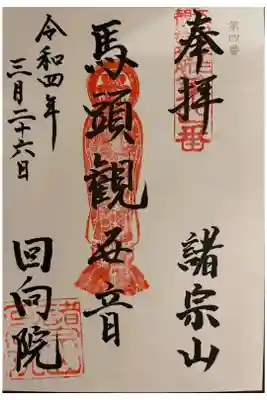 第四番
奉拝
諸宗山
馬頭観世音
回向院
令和四年
三月二十六日